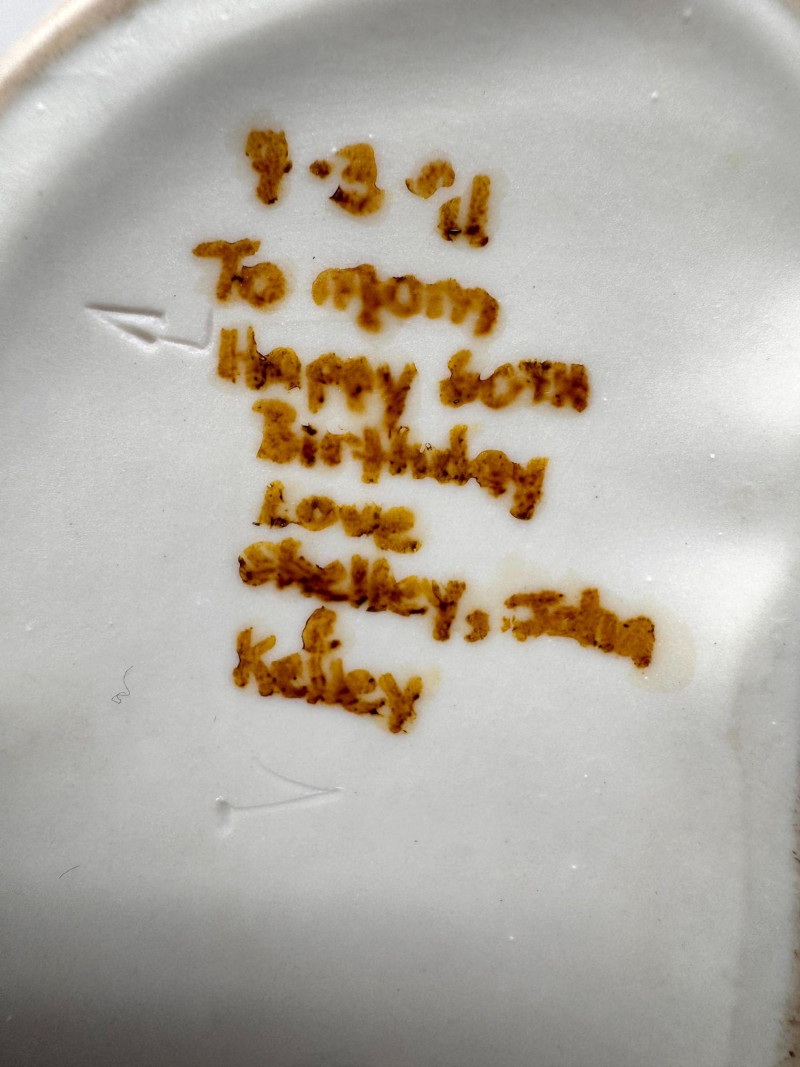 To mom
Happy 60TH
Birthday
Love
Shelley, John
Kelley